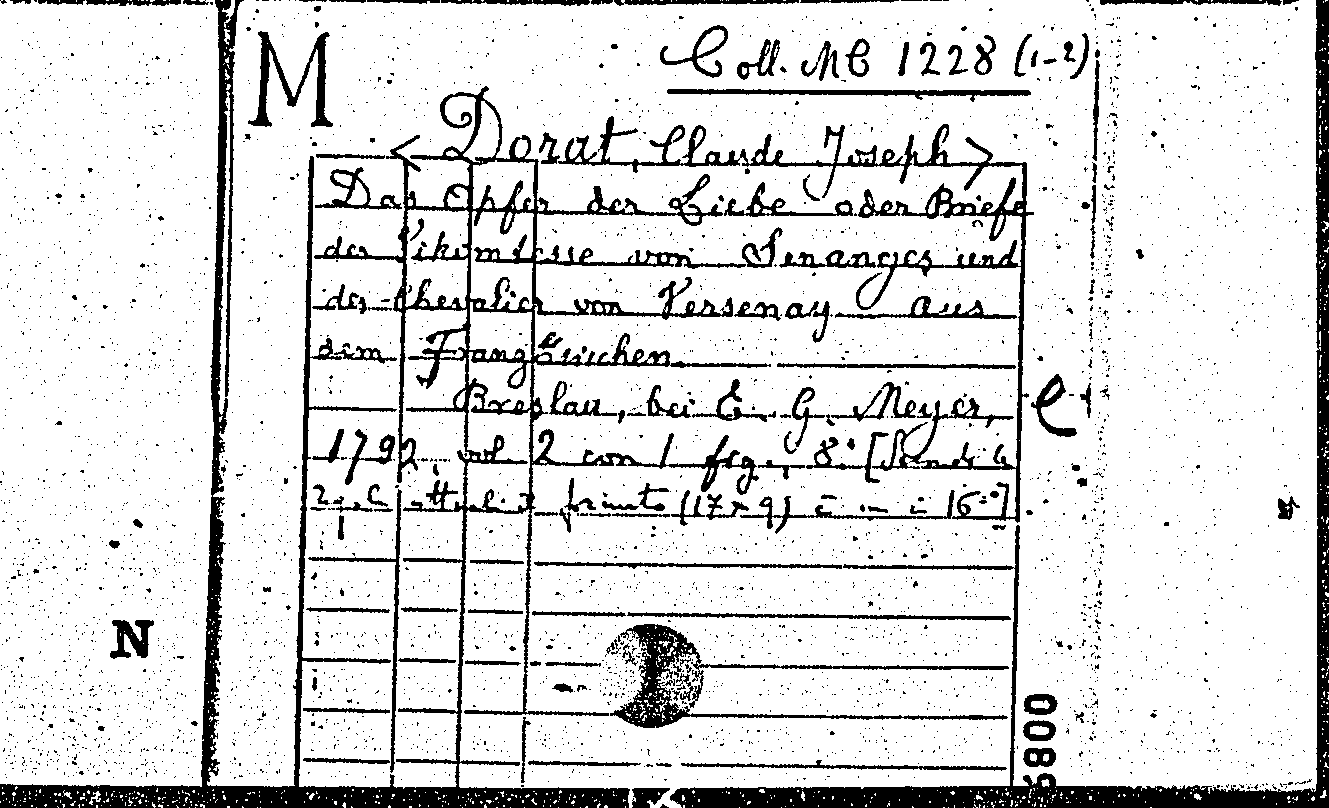 M
Coll. MC 1228 (1-2)
< Dorat, Claude Joseph >
Das Opfer der Liebe oder Briefe
der Vikomtesse von Senanges und
des Chevalier von Versenay aus
dem Französischen.
Breslau, bei E. G. Meyer,
1792, vol. 2 con 1 frg., 8° [
(17x9) 16°]
e
N